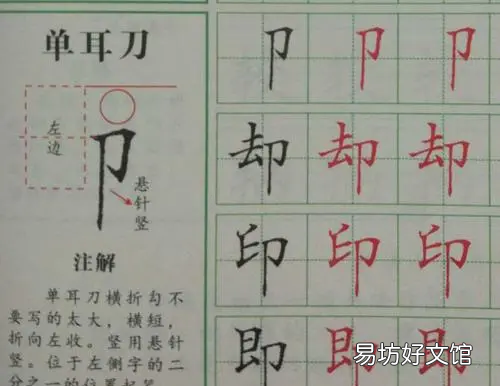 单耳刀
左边
悬针竖
注解
单耳刀横折勾不
要写的太大，横短，
折向左收。竖用悬针
竖。位于左侧字的二
分之一的位置起笔
卩 卩 卩
却 却 却
印 印 印
即 即 即
易坊好文馆